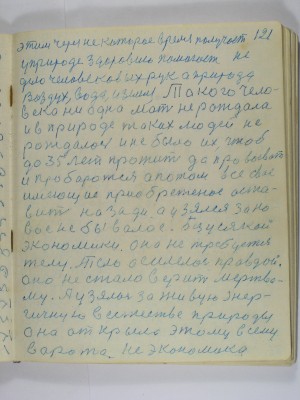 этим через некоторое время получает 121
у природе здоровие помогает не
дело человеков их рук а природа
Воздух, вода, и земля. Такого чело-
века ни одна мать не рождала
и в природе таких людей не
рождалось и не было их, чтоб
до 35 лет прожить да провоевать
и пробороться а потом все свое
имеющие приобретеное оста-
вить назади, а узялся за но-
вое небывалое. Без усякой
экономики, оно не требуется
телу. Тело осилилось правдой.
Оно не стало верить мертво-
му. А узялся за живую энер-
гичную в естестве природу
Она открыла этому всему
варота. Не экономика